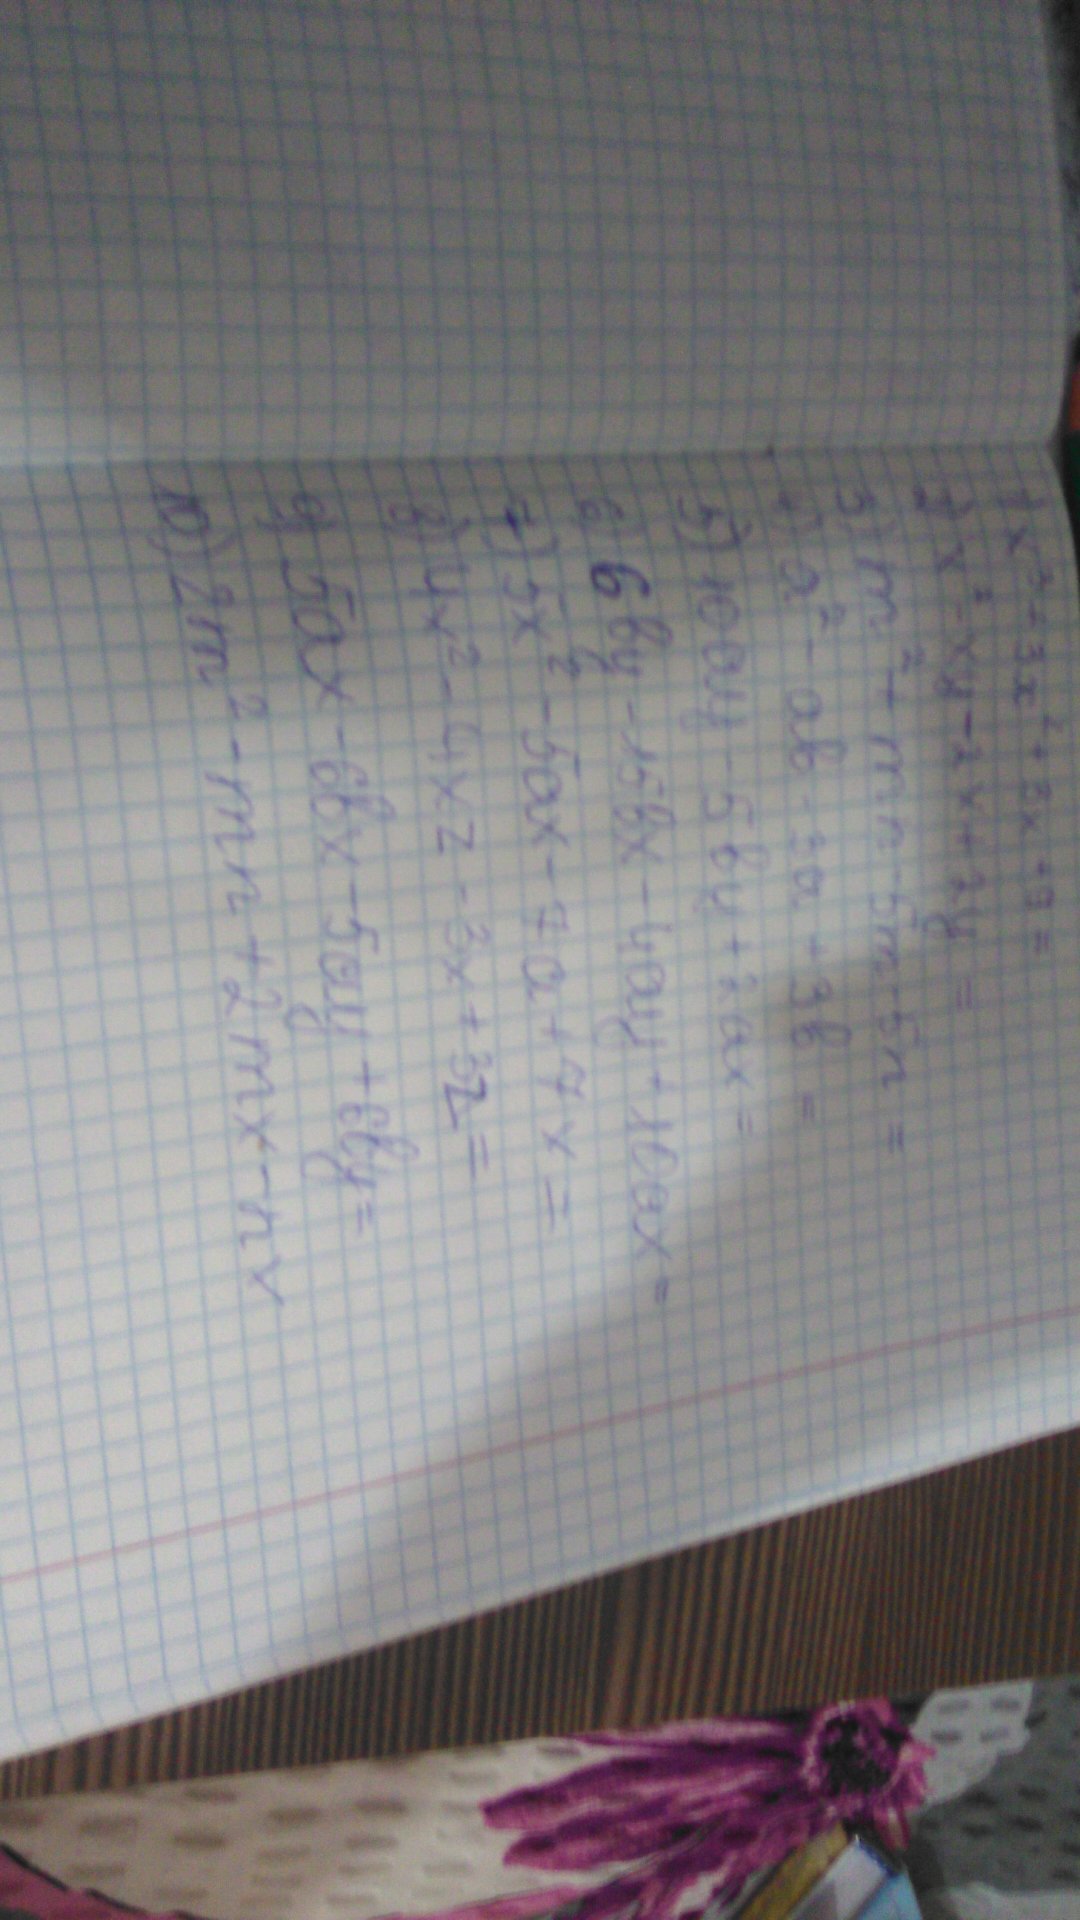 1) x³ + 3x² + 3x + 9 =
2) x² - xy - 2x + 2y =
3) m² + mn - 5m - 5n =
4) a² - ab - 3a + 3b =
5) 10ay - 5by + 2ax =
6) 6by - 15bx - 4ay + 10ax =
7) 5x² - 5ax - 7a + 7x =
8) 4x² - 4xz - 3x + 3z =
9) 5ax - 6bx - 5ay + 6by =
10) 2m² - mn + 2mx - nx